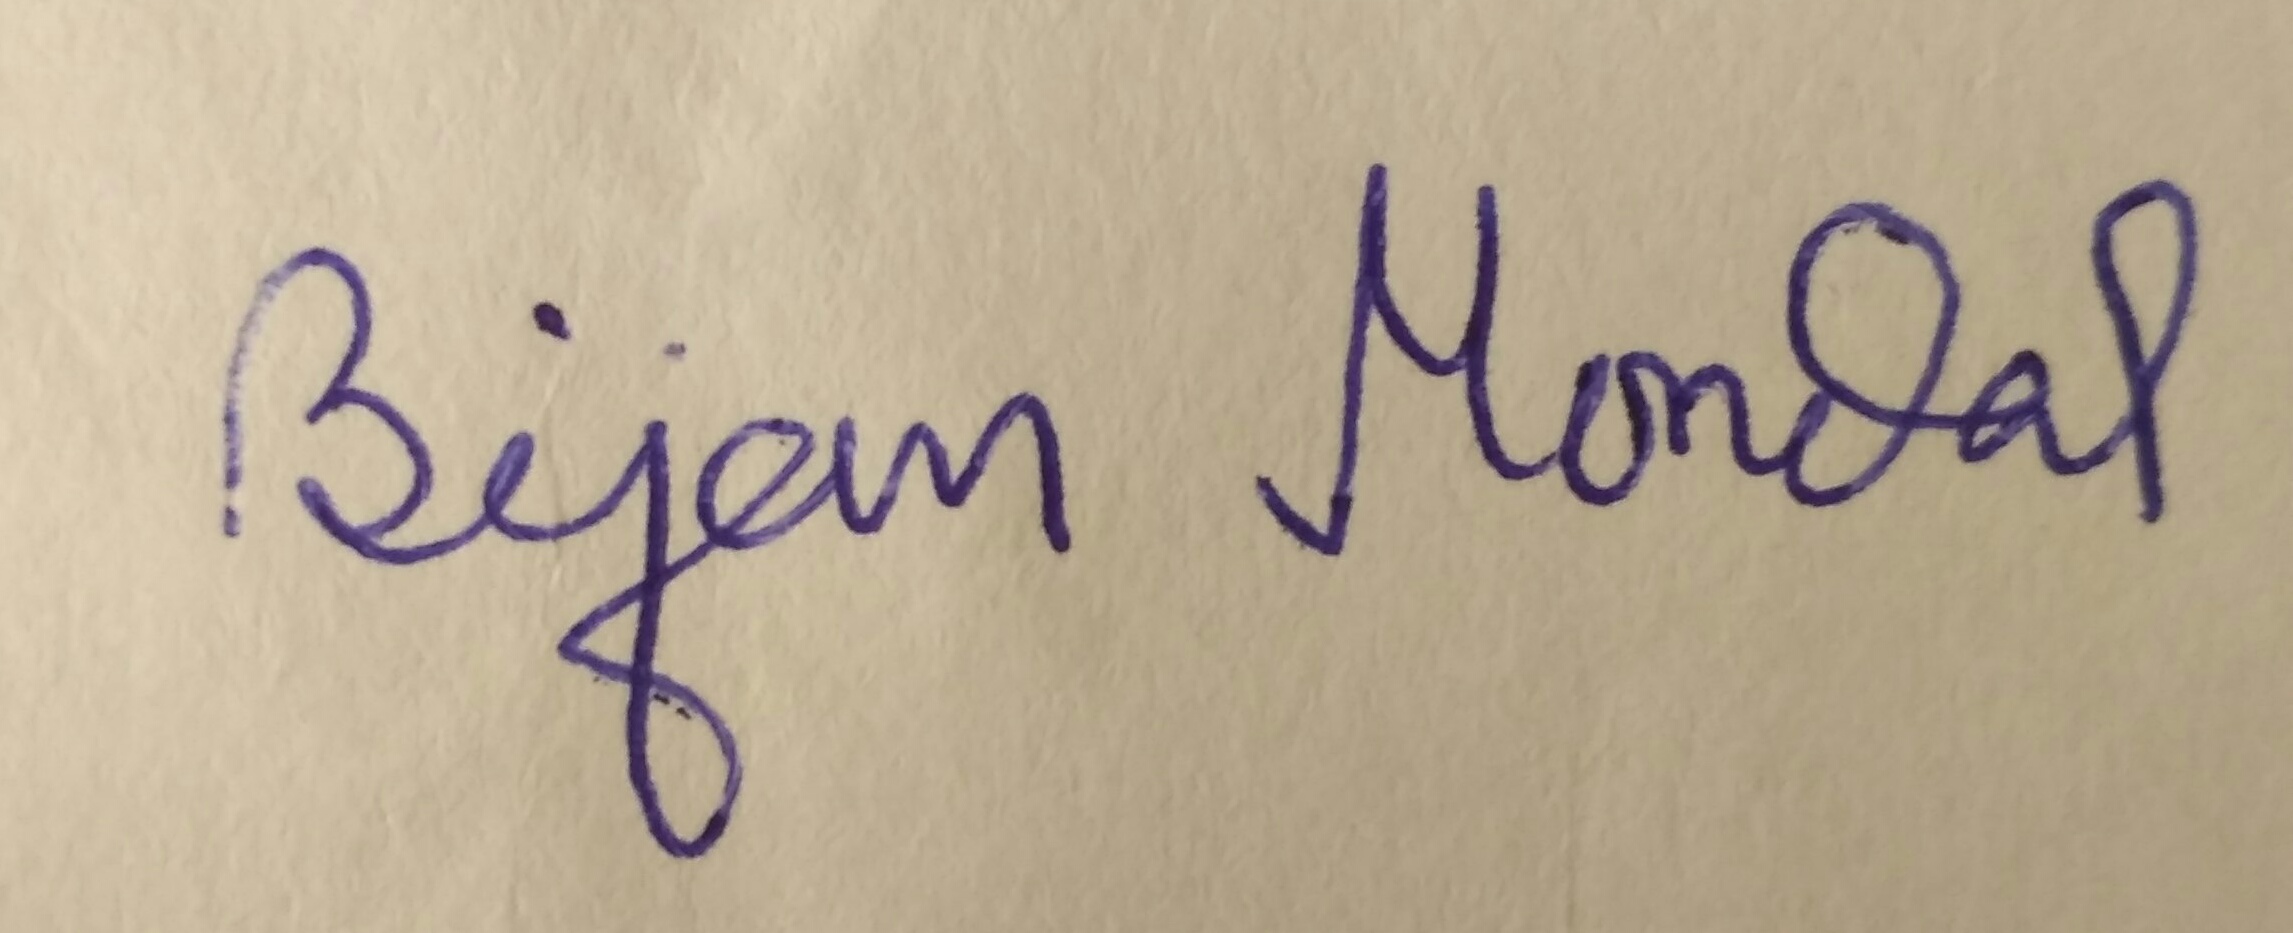 Bijan Mondal